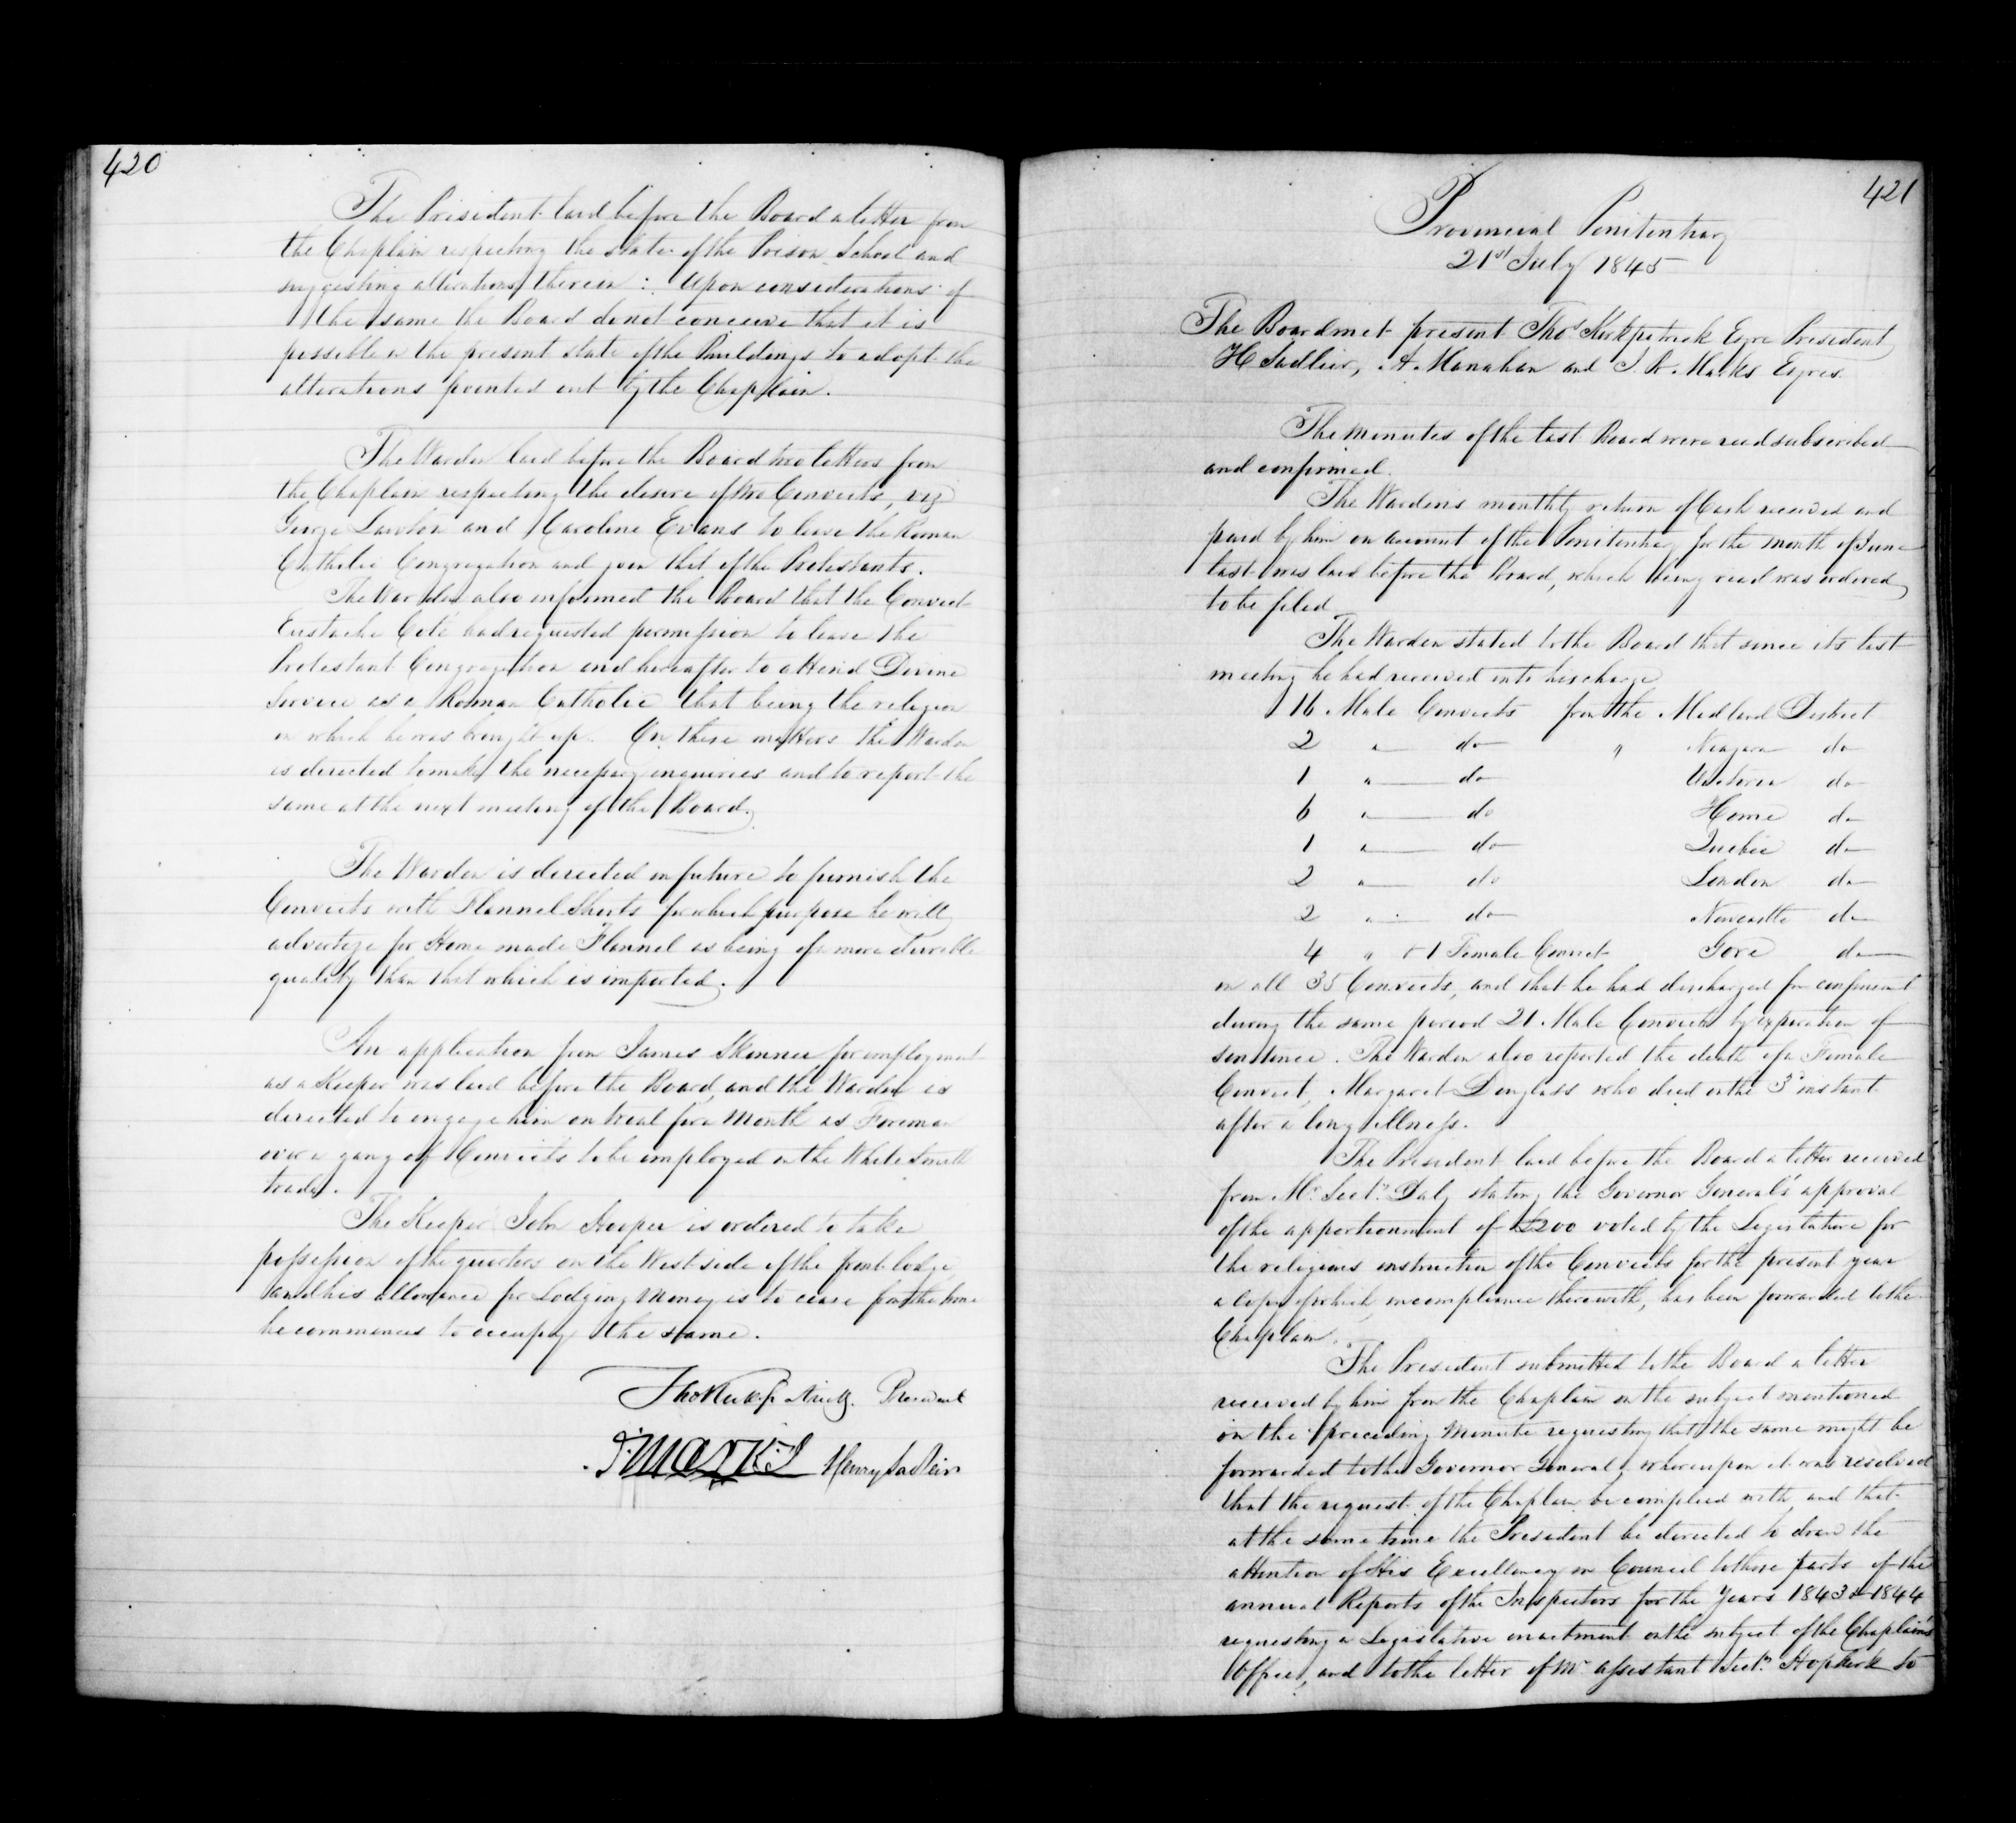 420
The President laid before the Board a letter from
the Chaplain respecting the state of the Prison School and
suggesting alterations therein : Upon considerations of
the same the Board do not conceive that it is
possible in the present state of the Buildings to adopt the
alterations pointed out by the Chaplain.
The Warden laid before the Board two letters from
the Chaplain respecting the desire of two Convicts, viz
George Lawton and Caroline Evans to leave the Roman
Catholic Congregation and join that of the Protestants.
The Warden also informed the Board that the Convict
Eustache Coté had requested permission to leave the
Protestant Congregation and hereafter to attend Divine
Service as a Roman Catholic that being the religion
in which he was brought up. On these matters the Warden
is directed to make the necessary inquiries and to report the
same at the next meeting of the Board.
The Warden is directed in future to furnish the
Convicts with Flannel Shirts for which purpose he will
advertize for Home made Flannel as being of a more durable
quality than that which is imported.
An application from James Skinner for employment
as a Keeper was laid before the Board, and the Warden is
directed to engage him on trial for a Month as Foreman
over a gang of Convicts to be employed in the White Smith
trade.
The Keeper John Hooper is ordered to take
possession of the quarters on the West side of the front lodge
and his allowance for Lodging Money is to cease from the time
he commences to occupy the same.
Tho Kirkpatrick President
J. Marks Henry Sadleir
421
Provincial Penitentiary
21st July 1845
The Board met present Thos Kirkpatrick Esqre President
H Sadlier, A. Manahan and J. R. Marks Esqres.
The minutes of the last Board were read subscribed
and confirmed.
The Warden's monthly return of Cash received and
paid by him on account of the Penitentiary for the month of June
last was laid before the Board, which being read was ordered
to be filed
The Warden stated to the Board that since its last
meeting he had received into his charge
16 Male Convicts from the Midland District
2 " do " Niagara do
1 " do Victoria do
6 " do Home do
1 " do Quebec do
2 " do London do
2 " do Newcastle do
4 " & 1 Female Convict Gore do
in all 35 Convicts, and that he had discharged from confinement
during the same period 21 Male Convicts by expiration of
sentence. The Warden also reported the death of a Female
Convict, Margaret Douglass who died on the 3d instant
after a long illness.
The President laid before the Board a letter received
from Mr. Secty. Daly stating the Governor General's approval
of the apportionment of £200 voted by the Legislature for
the religious instruction of the Convicts for the present year
a copy of which in compliance therewith, has been forwarded to the
Chaplain.
The President submitted to the Board a letter
received by him from the Chaplain on the subject mentioned
in the preceding Minute requesting that the same might be
forwarded to the Governor General, whereupon it was resolved
that the request of the Chaplain be complied with, and that
at the same time the President be directed to draw the
attention of His Excellency in Council to those parts of the
annual Reports of the Inspectors for the Years 1843 & 1844
requesting a Legislative enactment on the subject of the Chaplain's
Office, and to the letter of Mr. assistant Secty. Hopkirk to